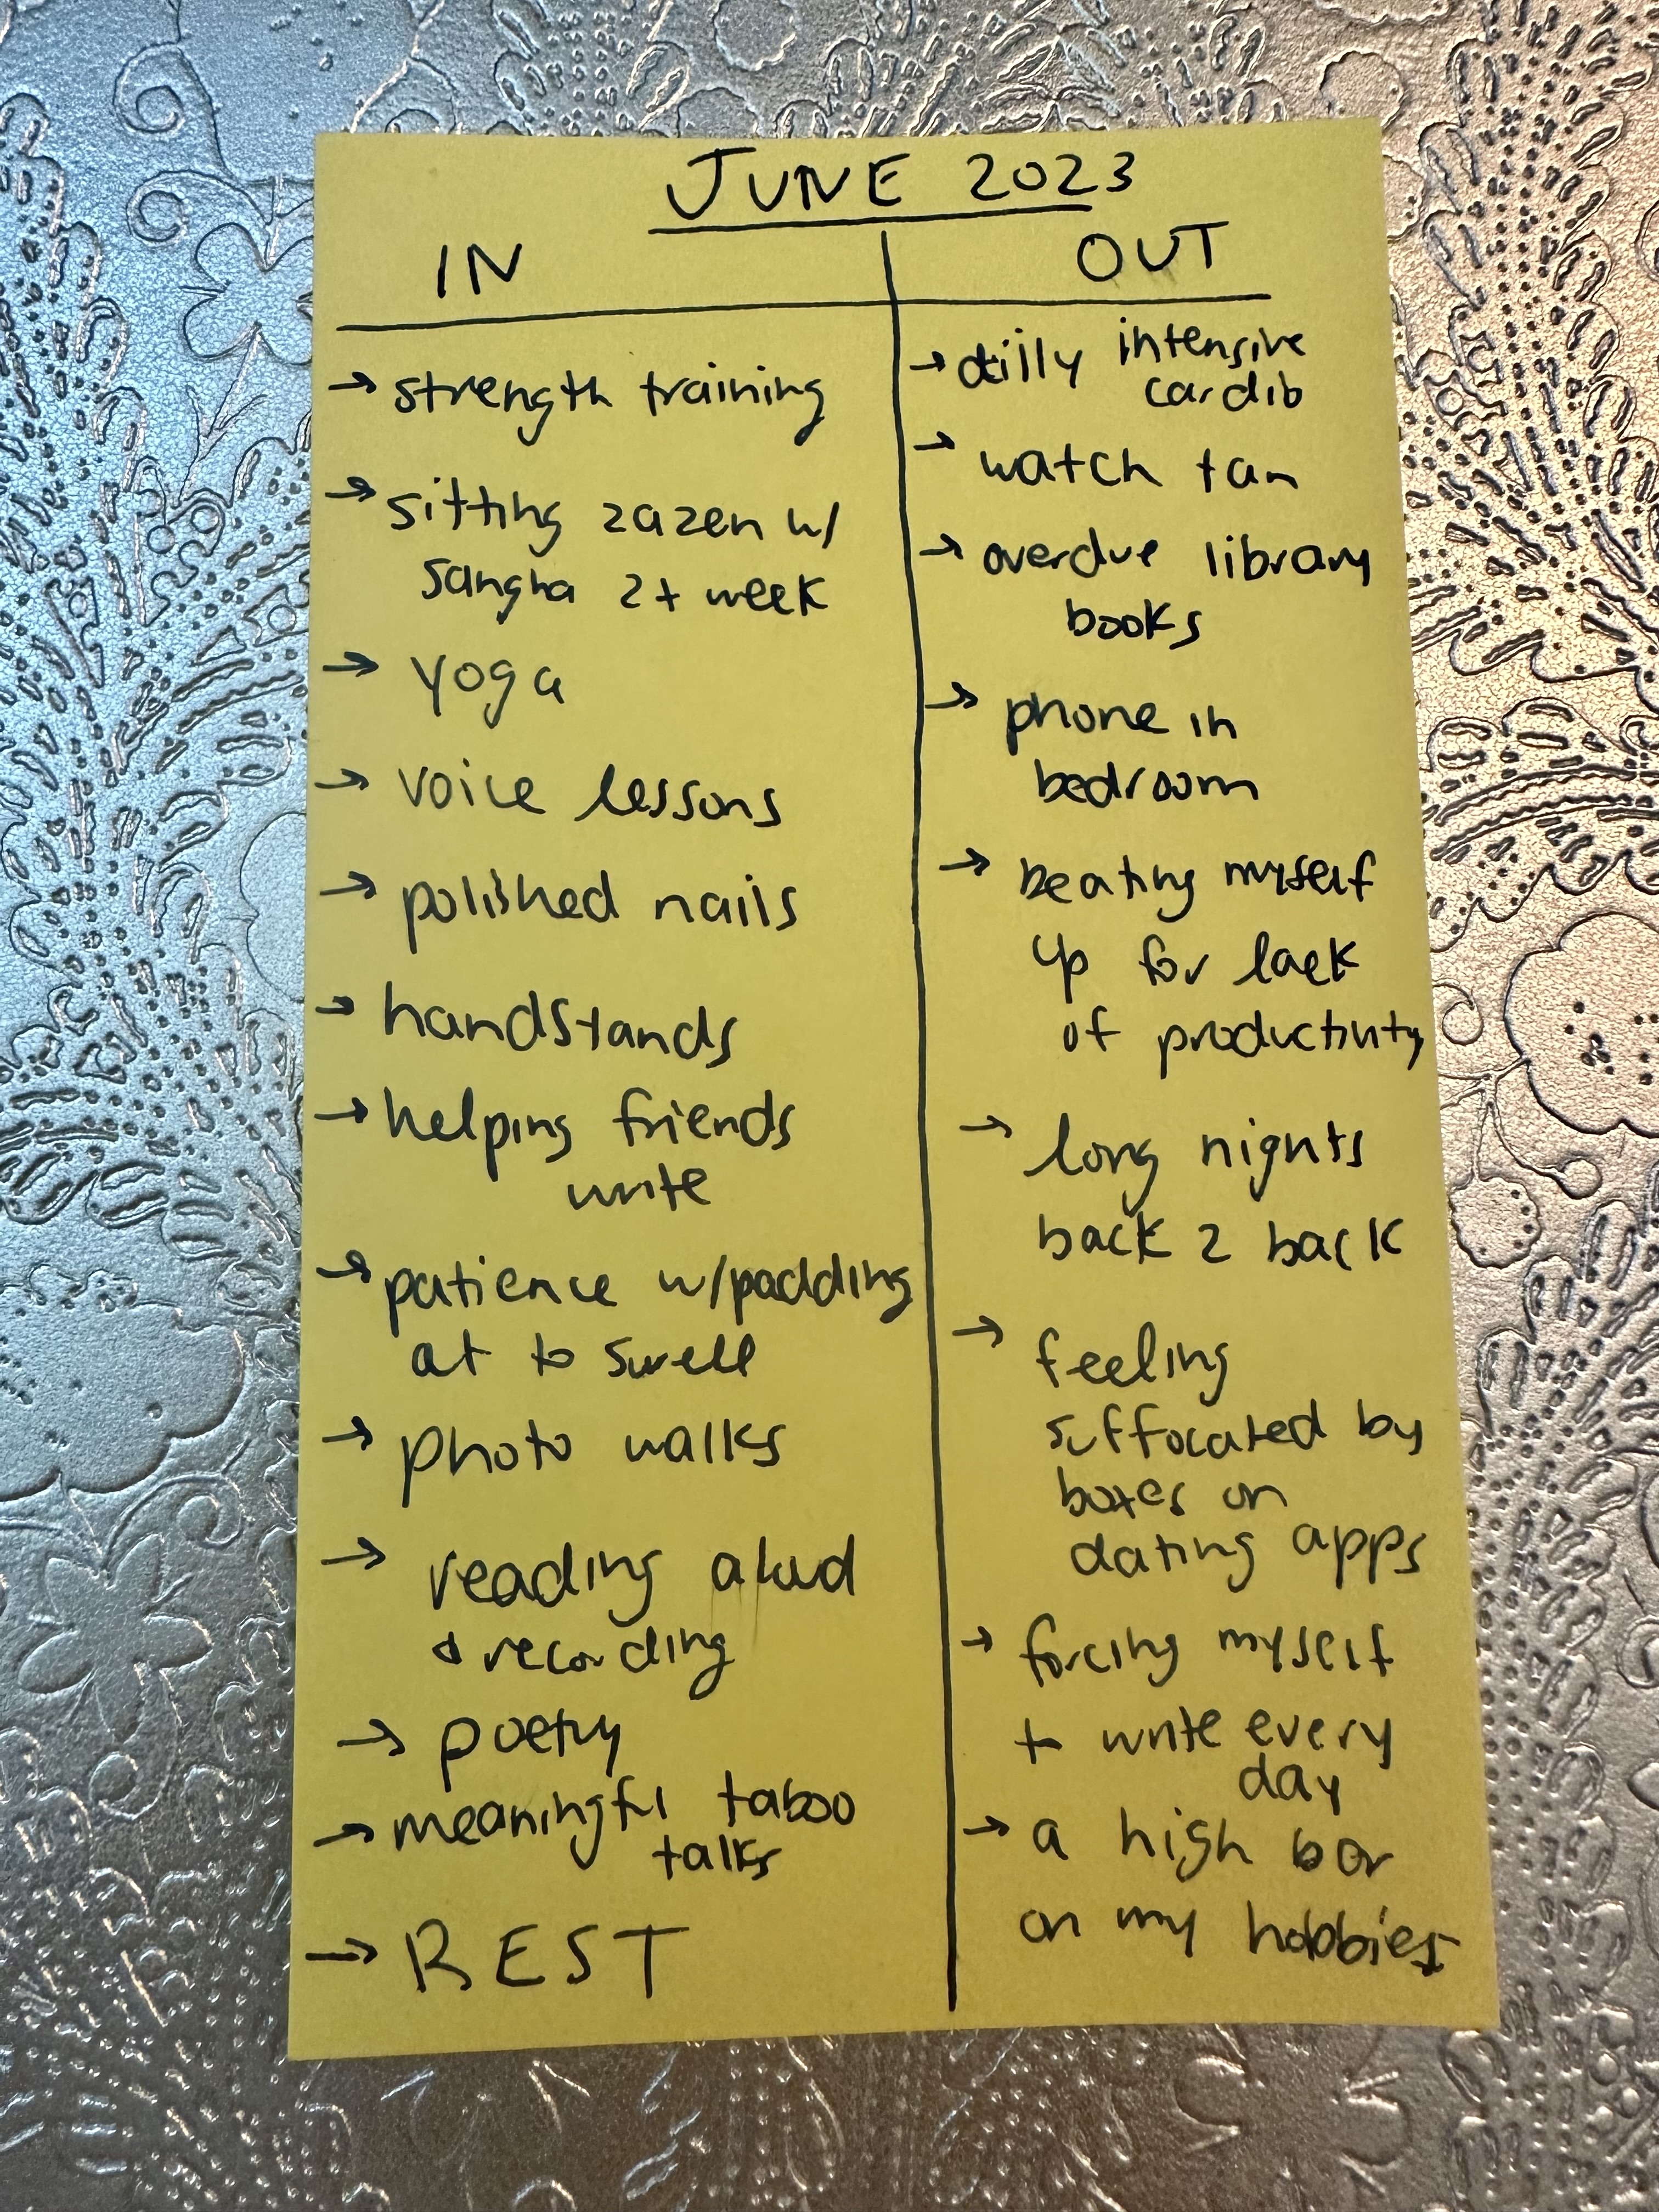 JUNE 2023
IN
→ strength training
→ sitting zazen w/
sangha 2+ week
→ yoga
→ voice lessons
→ polished nails
→ handstands
→ helping friends
write
→ patience w/ paddling
at to swell
→ photo walks
→ reading aloud
& recording
→ poetry
→ meaningful taboo
talks
→ REST
OUT
→ daily intensive
cardio
→ watch tan
→ overdue library
books
→ phone in
bedroom
→ beating myself
up for lack
of productivity
→ long nights
back 2 back
→ feeling
suffocated by
boxes on
dating apps
→ forcing myself
to write every
day
→ a high bar
on my hobbies